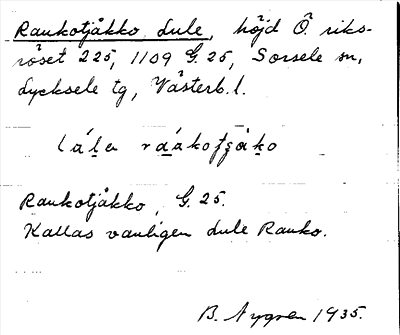 Raukotjåkko, Lule, höjd Ö. riks-
röset 225, 1109 G. 25, Sorsele sn,
Lycksele tg, Västerb. l.
Raukotjåkko, G. 25.
Kallas vanligen Lule Rauko.
B. Nygren 1935.